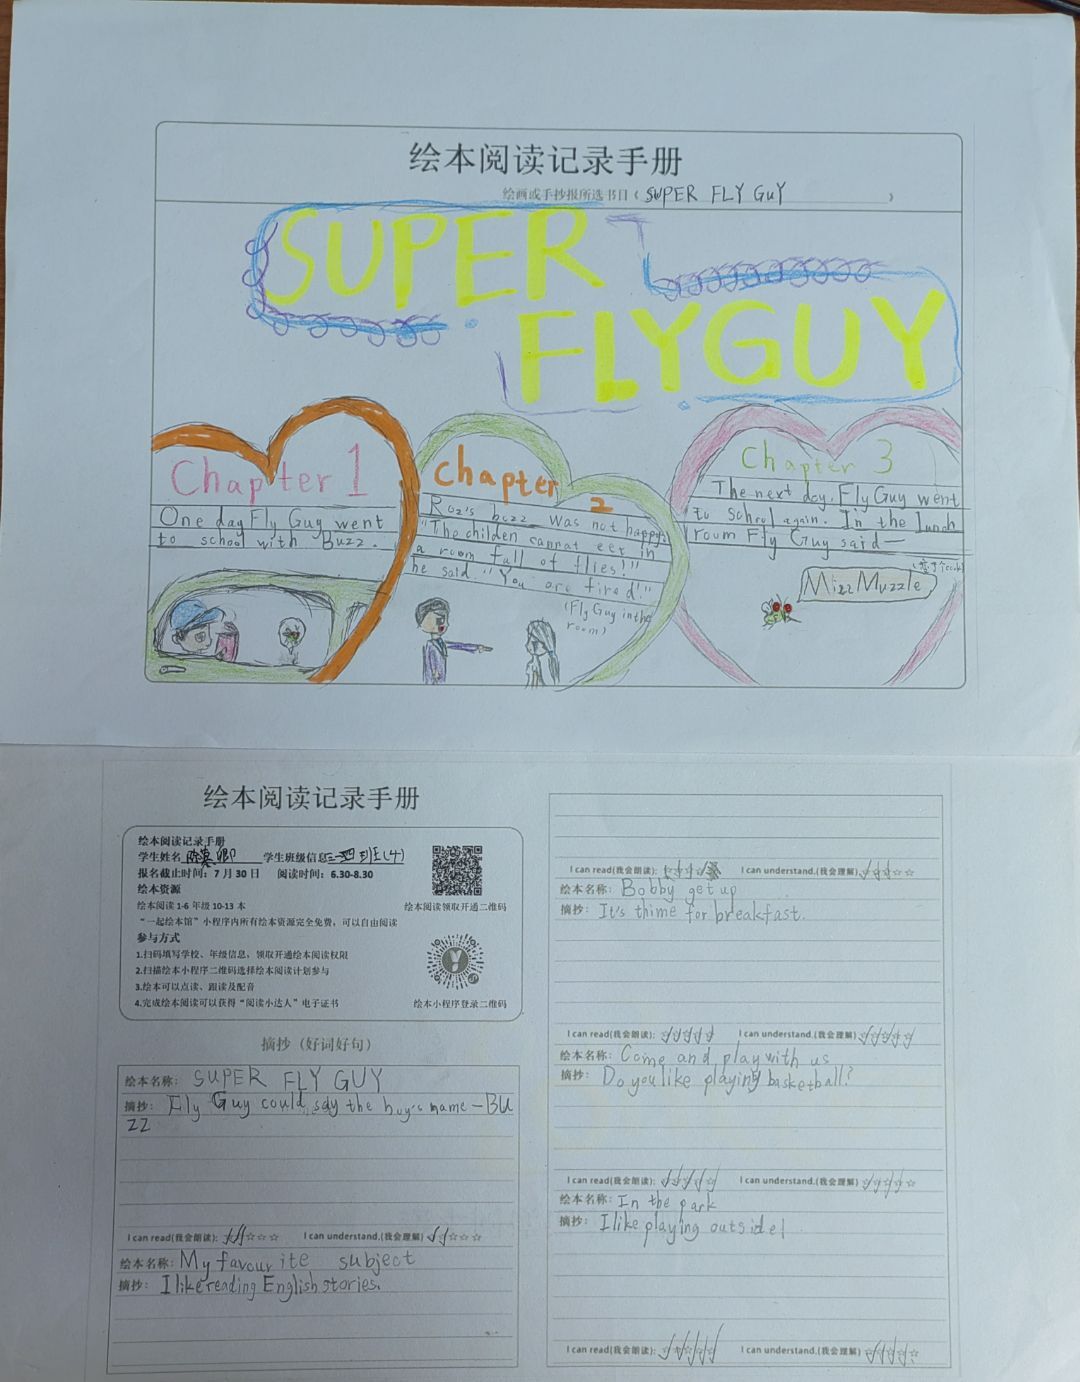 绘本阅读记录手册
绘画或手抄报所选书目（ SUPER FLY GUY ）
SUPER
FLYGUY
Chapter 1
One day Fly Guy went
to school with Buzz.
Chapter
2
Roz's bozz was not happy.
"The childen cannat eet in
a room full of flies!"
he said. "You are fired!"
(Fly Guy in the
room)
Chapter 3
The next day. Fly Guy went
to school again. In the lunch
room Fly Guy said—
Mizz Muzzle
绘本阅读记录手册
绘本阅读记录手册
学生姓名 学生班级信息
报名截止时间：7 月 30 日 阅读时间：6.30-8.30
绘本资源
绘本阅读 1-6 年级 10-13 本
“一起绘本馆”小程序内所有绘本资源完全免费，可以自由阅读
参与方式
1.扫码填写学校、年级信息，领取开通绘本阅读权限
2.扫描绘本小程序二维码选择绘本阅读计划参与
3.绘本可以点读、跟读及配音
4.完成绘本阅读可以获得“阅读小达人”电子证书
绘本阅读领取开通二维码
绘本小程序登录二维码
摘抄（好词好句）
绘本名称： SUPER FLY GUY
摘抄： Fly Guy could say the buy's name—BU
ZZ
I can read(我会朗读): ☆☆☆☆☆ I can understand.(我会理解) ☆☆☆☆☆
绘本名称： My favourite subject
摘抄： I like reading English stories.
I can read(我会朗读): ☆☆☆☆☆ I can understand.(我会理解): ☆☆☆☆☆
绘本名称： Bobby get up
摘抄： It's thime for breakfast.
I can read(我会朗读): ☆☆☆☆☆ I can understand.(我会理解) ☆☆☆☆☆
绘本名称： Come and play with us
摘抄： Do you like playing basketball?
I can read(我会朗读): ☆☆☆☆☆ I can understand.(我会理解) ☆☆☆☆☆
绘本名称： In the park
摘抄： I like playing outside!
I can read(我会朗读): ☆☆☆☆☆ I can understand.(我会理解) ☆☆☆☆☆